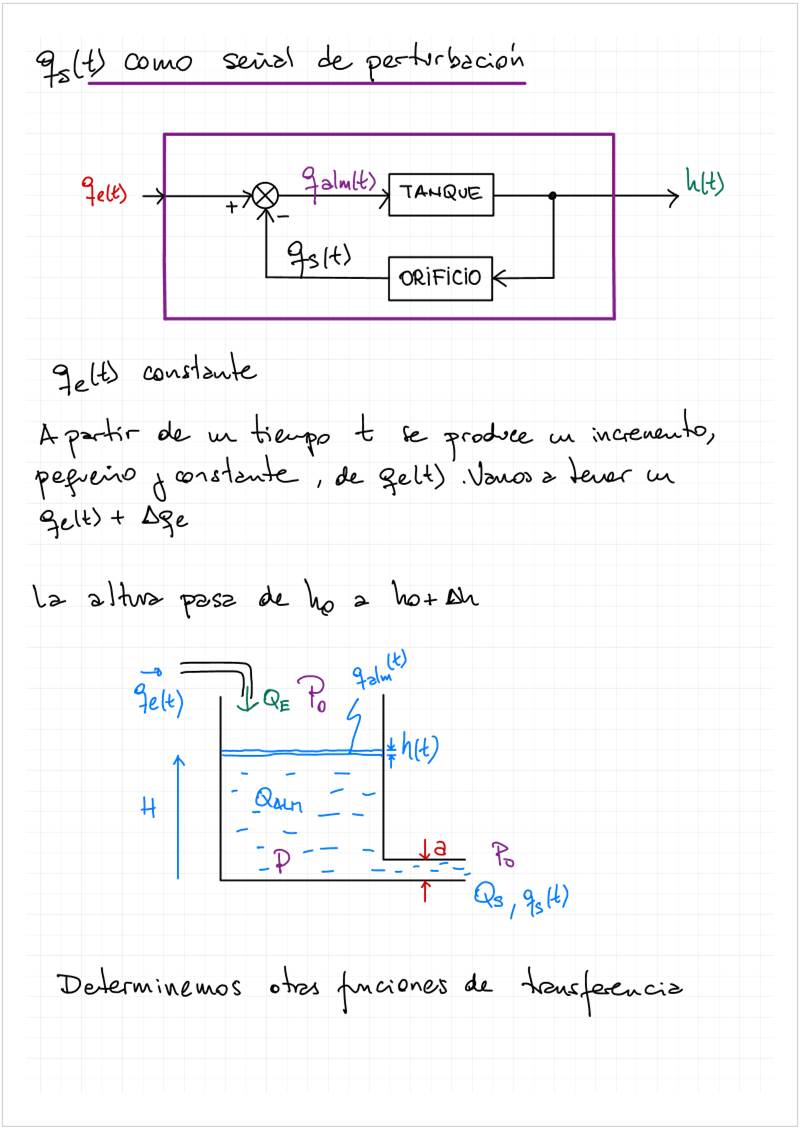 qs(t) como señal de perturbación
qe(t)
+
-
qalm(t)
TANQUE
h(t)
qs(t)
ORIFICIO
qe(t) constante
A partir de un tiempo t se produce un incremento,
pequeño y constante, de qe(t). Vamos a tener un
qe(t) + Δqe
La altura pasa de ho a ho + Δh
qe(t)
QE
Po
qalm(t)
h(t)
H
QALM
P
a
Po
Qs, qs(t)
Determinemos otras funciones de transferencia